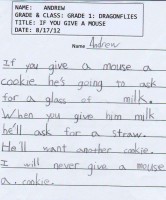 NAME: ANDREW
GRADE & CLASS: GRADE 1: DRAGONFLIES
TITLE: IF YOU GIVE A MOUSE
DATE: 8/17/12
Name Andrew
If you give a mouse a
cookie he's going to ask
for a glass of milk.
When you give him milk
he'll ask for a straw.
He'll want another cookie.
I will never give a mouse
a cookie.